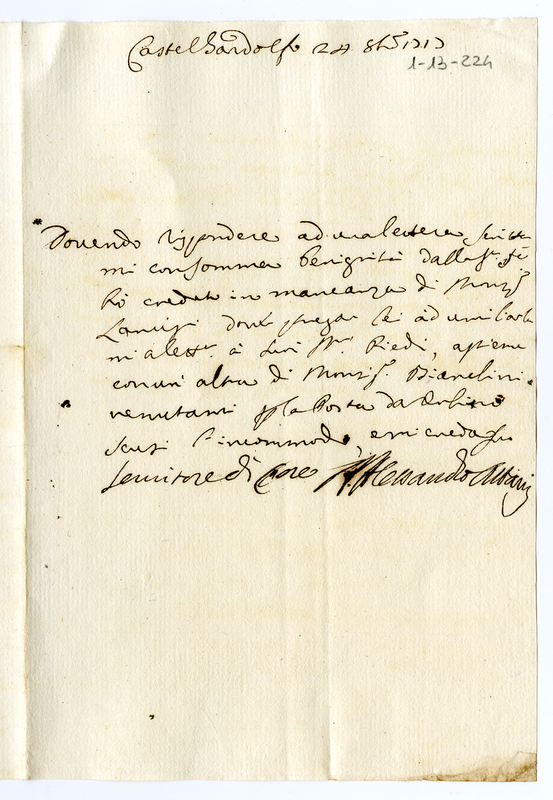 Castel Gandolfo 24 8bre 1717
1-13-224
Dovendo rispondere ad una lettera scritta
mi con somma benignità dalla
hò creduto in mancanza di Monsr
dover pregar lei ad umiliar la
mia lettra à suoi Piedi, assieme
con un altra di Monsr Bianchini
venutami p la Posta da Urbino
scusi l'incommodo, e mi creda suo
servitore di Core Alessandro Albani